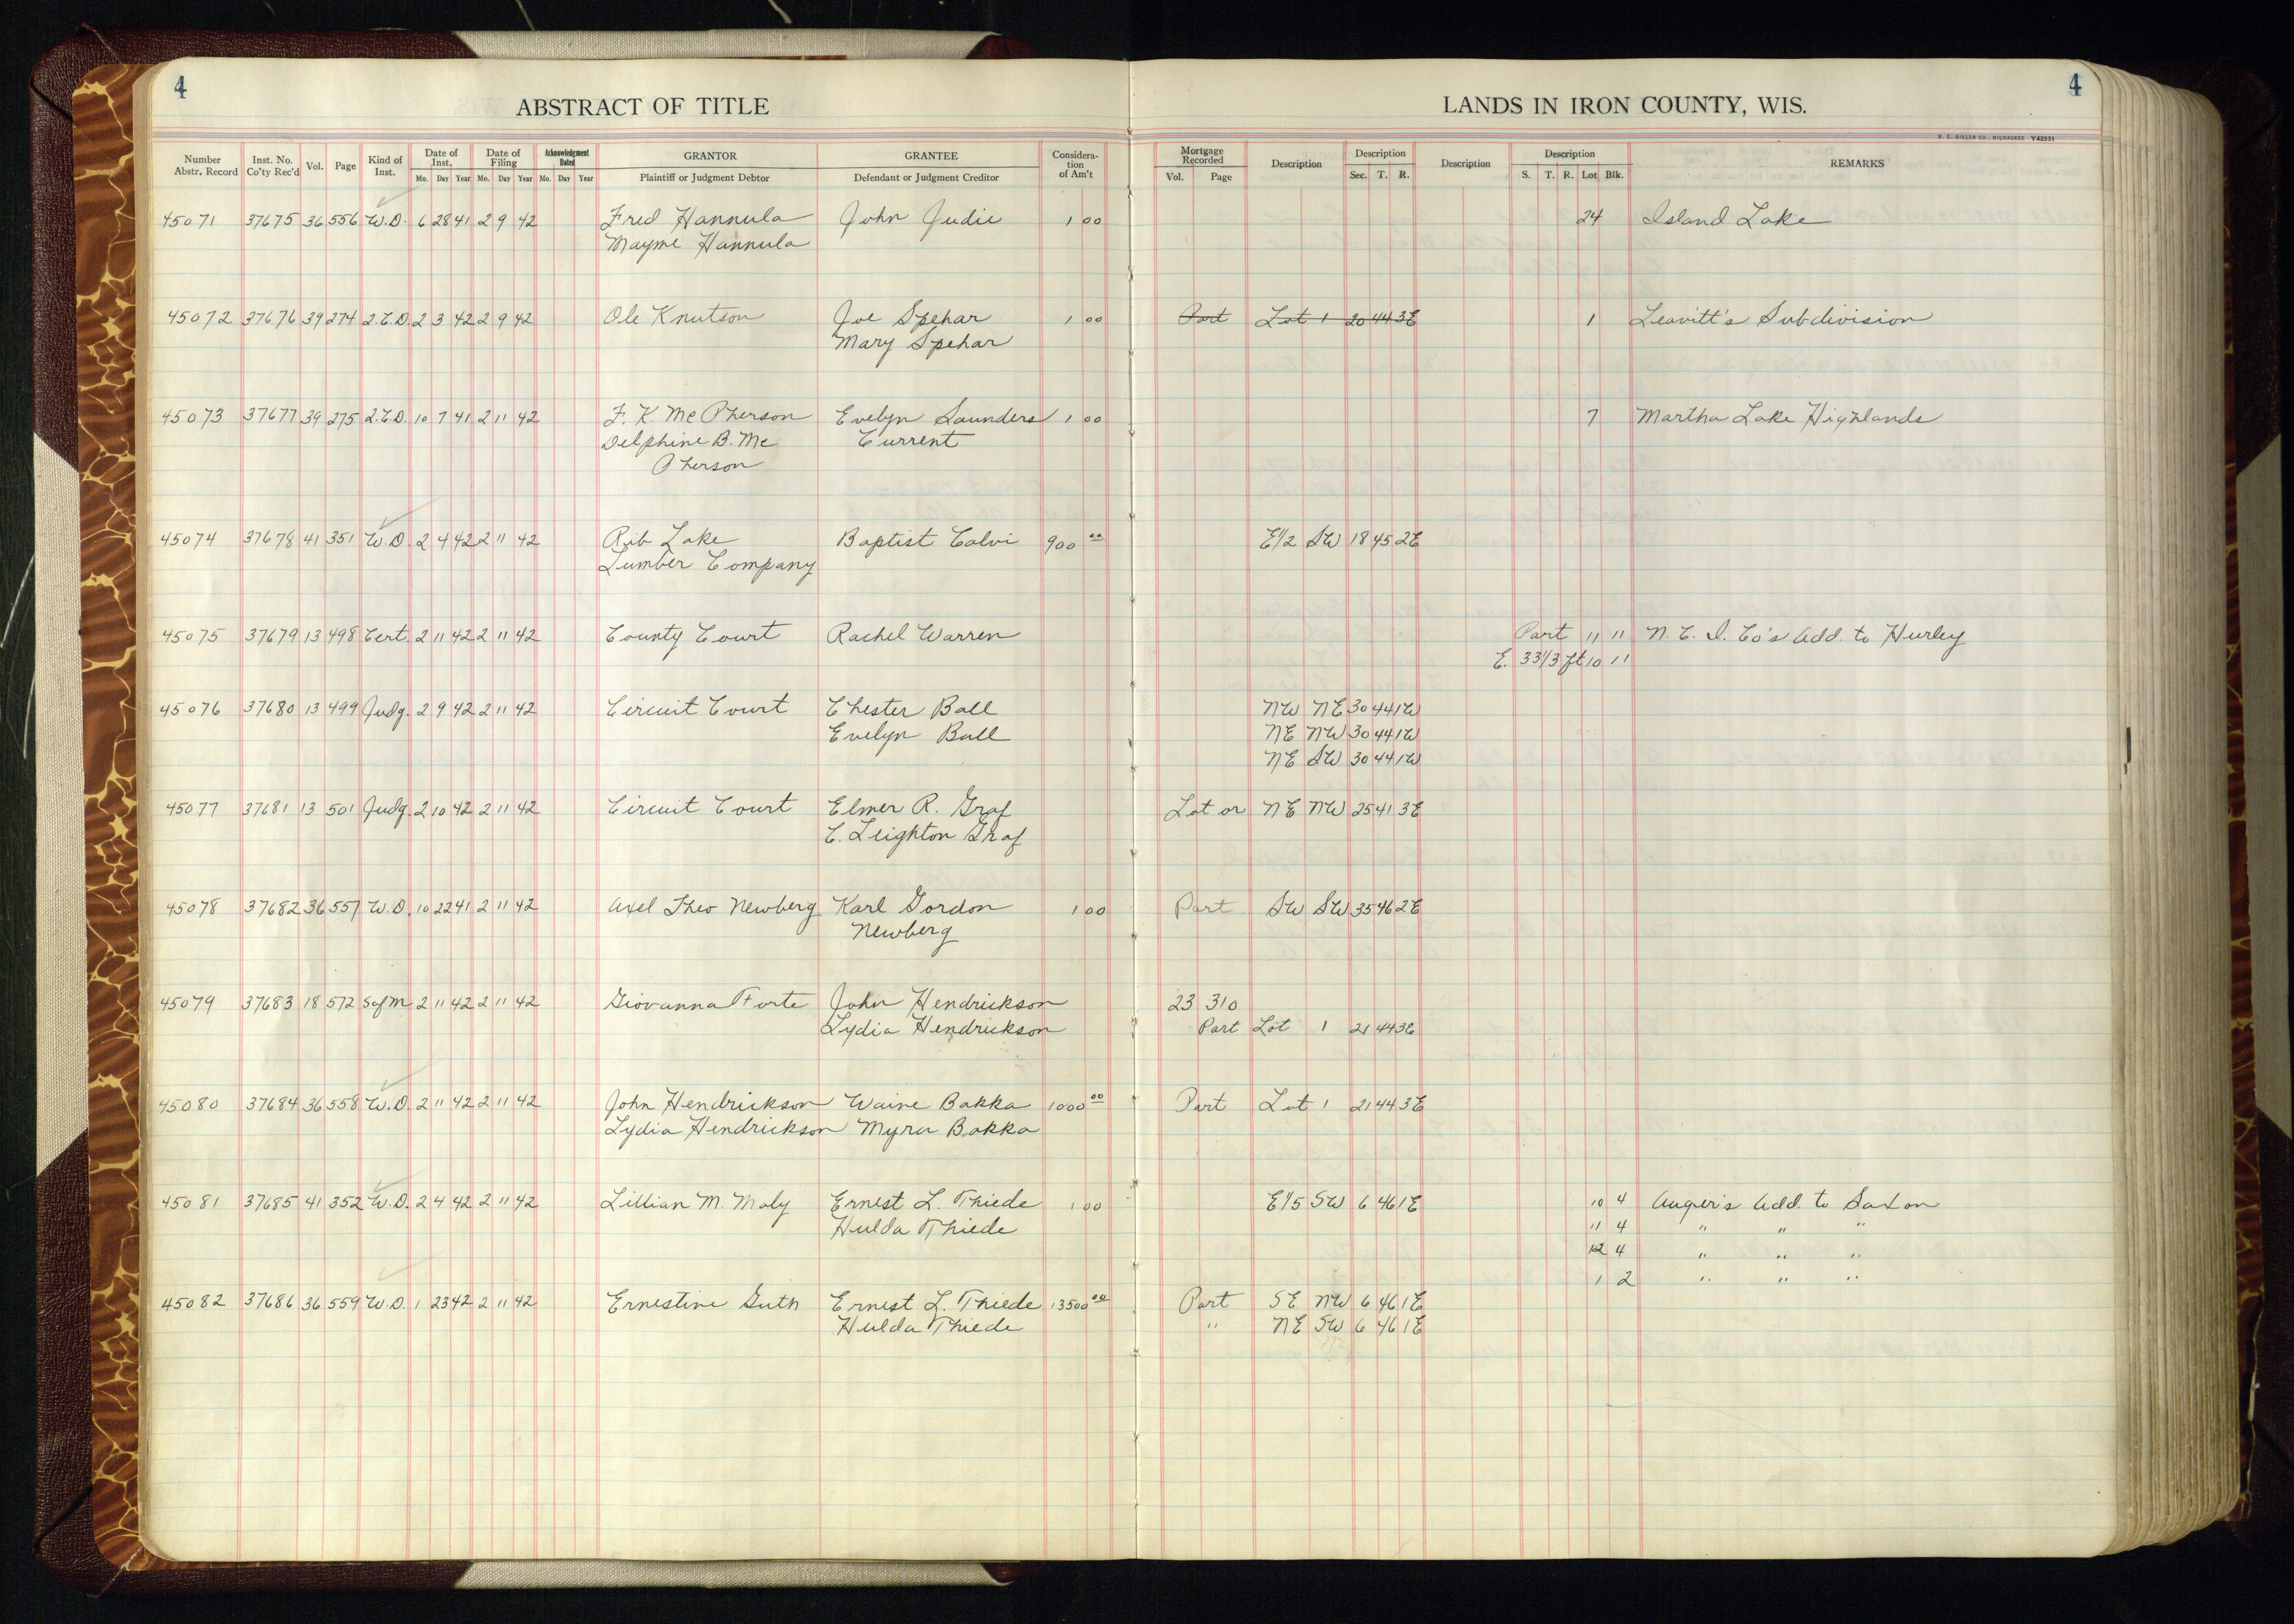 4
4
ABSTRACT OF TITLE
LANDS IN IRON COUNTY, WIS.
H. C. MILLER CO., MILWAUKEE Y42931
Number Abstr. Record Inst. No. Co'ty Rec'd Vol. Page Kind of Inst. Date of Inst. Mo. Day Year Date of Filing Mo. Day Year Acknowledgment Dated Mo. Day Year GRANTOR Plaintiff or Judgment Debtor GRANTEE Defendant or Judgment Creditor Consideration of Am't Mortgage Recorded Vol. Page Description Description Sec. T. R. Description Description S. T. R. Lot Blk. REMARKS
45071 37675 36 556 W.D. 6 28 41 2 9 42 Fred Hannula John Judie 1 00 24 Island Lake
Mayme Hannula
45072 37676 39 274 Q.C.D. 2 3 42 2 9 42 Ole Knutson Joe Spehar 1 00 Part Lot 1 20 44 3E 1 Leavitt's Subdivision
Mary Spehar
45073 37677 39 275 Q.C.D. 10 7 41 2 11 42 F. K. McPherson Evelyn Saunders 1 00 7 Martha Lake Highlands
Delphine B. Mc Current
Pherson
45074 37678 41 351 W.D. 2 4 42 2 11 42 Rib Lake Baptist Calvi 900 00 E1/2 SW 18 45 2E
Lumber Company
45075 37679 13 498 Cert. 2 11 42 2 11 42 County Court Rachel Warren Part 11 11 N. C. I. Co's Add. to Hurley
E. 33 1/3 ft 10 11
45076 37680 13 499 Judg. 2 9 42 2 11 42 Circuit Court Chester Ball NW NE 30 44 1W
Evelyn Ball NE NW 30 44 1W
NE SW 30 44 1W
45077 37681 13 501 Judg. 2 10 42 2 11 42 Circuit Court Elmer R. Graf Lot or NE NW 25 41 3E
C. Leighton Graf
45078 37682 36 557 W.D. 10 22 41 2 11 42 Axel Theo Newberg Karl Gordon 1 00 Part SW SW 35 46 2E
Newberg
45079 37683 18 572 Sat M 2 11 42 2 11 42 Giovanna Forte John Hendrickson 23 310
Lydia Hendrickson Part Lot 1 21 44 3E
45080 37684 36 558 W.D. 2 11 42 2 11 42 John Hendrickson Waine Bakka 1000 00 Part Lot 1 21 44 3E
Lydia Hendrickson Myra Bakka
45081 37685 41 352 W.D. 2 4 42 2 11 42 Lillian M. Maly Ernest L. Thiede 1 00 E1/5 SW 6 46 1E 10 4 Auger's Add. to Saxon
Hulda Thiede 11 4 " " "
12 4 " " "
1 2 " " "
45082 37686 36 559 W.D. 1 23 42 2 11 42 Ernestine Guth Ernest L. Thiede 13500 00 Part SE NW 6 46 1E
Hulda Thiede " NE SW 6 46 1E